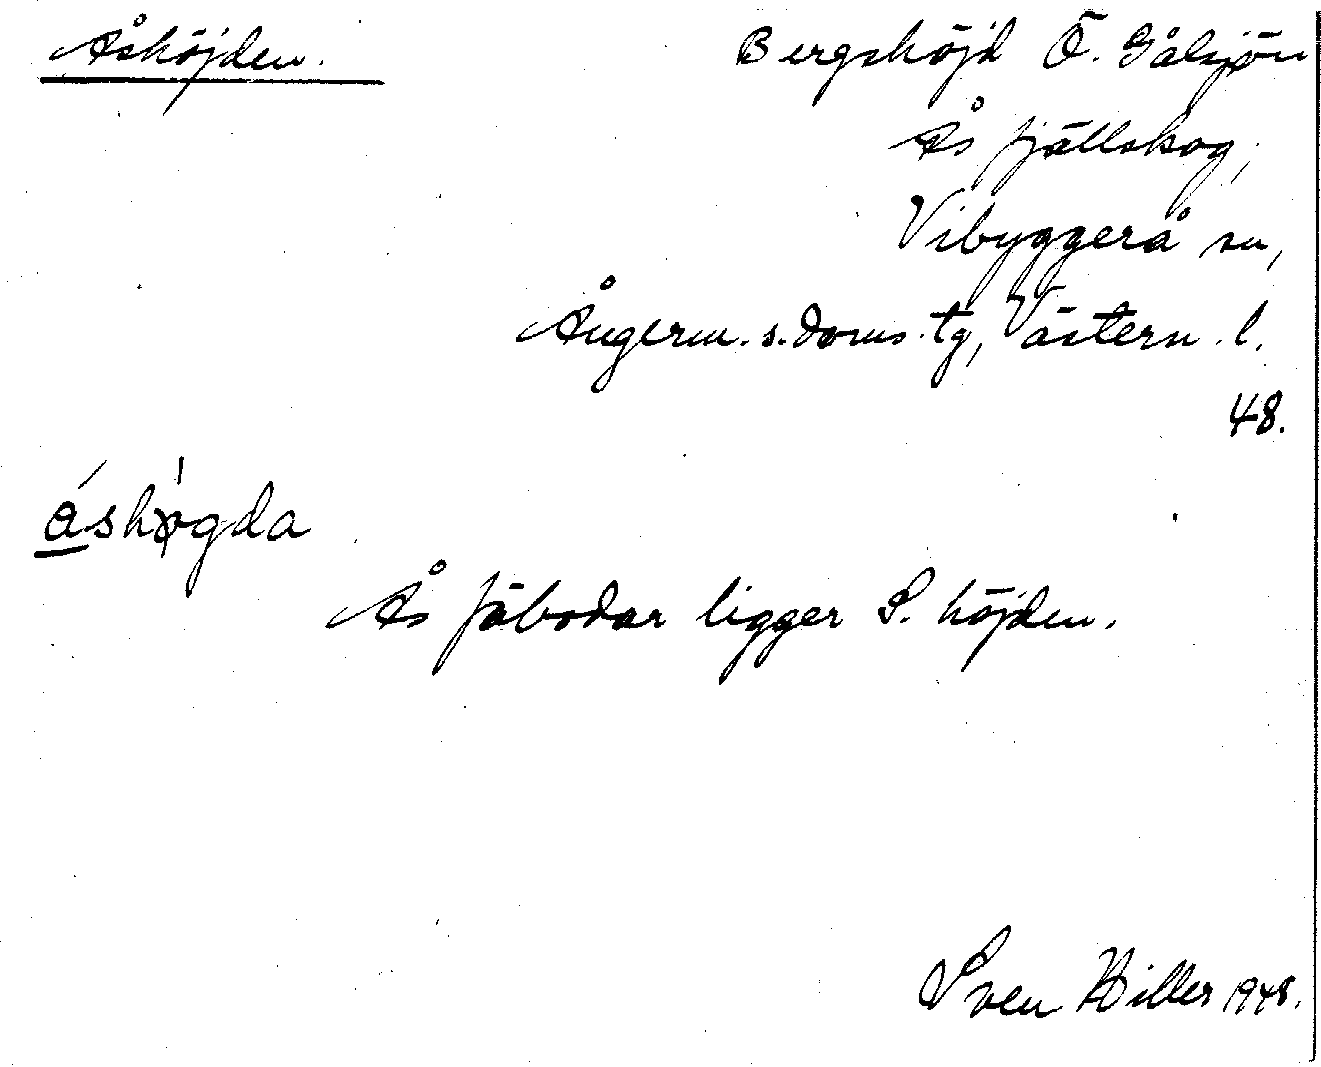 Åshöjden.
Bergshöjd Ö. Gålsjön
Ås fjällskog,
Vibyggerå sn,
Ångerm. s. doms. tg, Västern. l.
48.
åshøgda
Ås fäbodar ligger S. höjden.
Sven Hiller 1948.